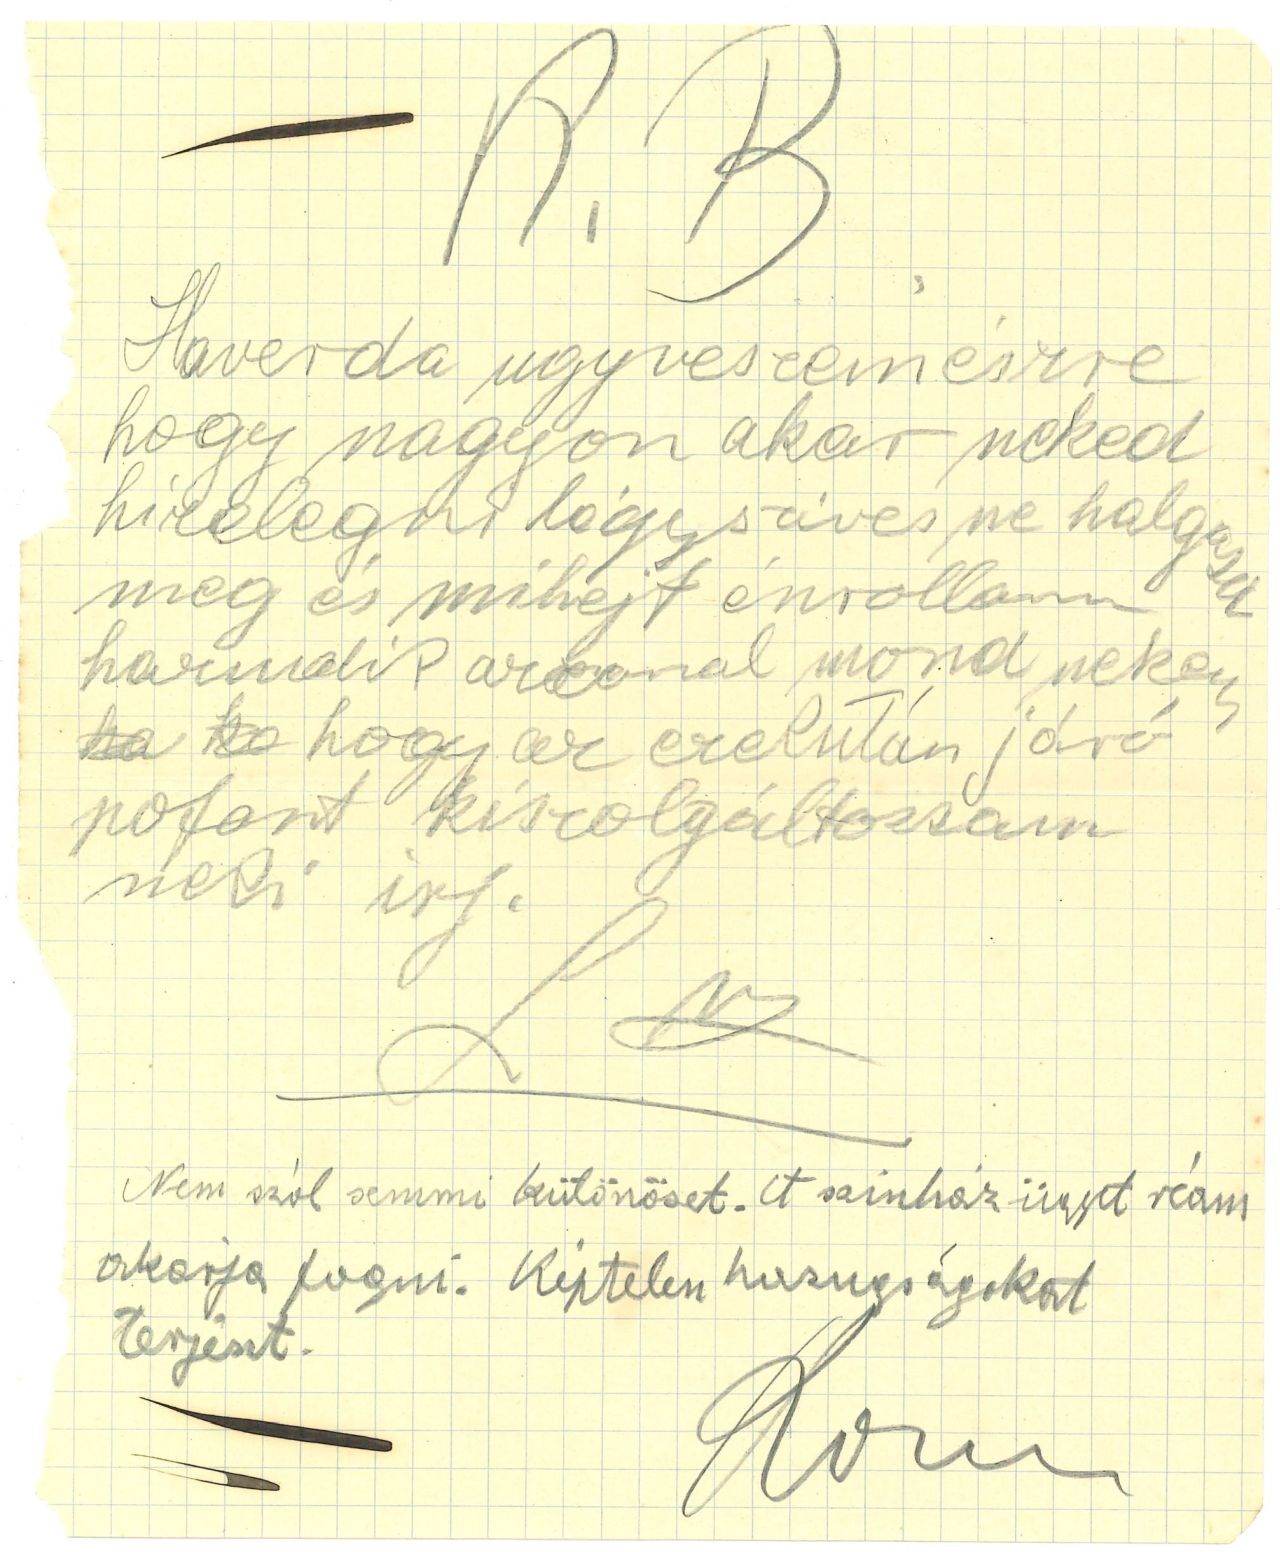 R. B.
Haverda ugyveszemészre
hogy nagyon akar neked
hizelegni légyszives ne halgasd
meg és mihejt énrollam
harmdik arconal mond nekem
hogy az ezekután járó
pofont kiszolgáltassam
neki irj.
Nem szól semmi különöset. A szinház ügyet reám
akarja fogni. Képtelen hazugságokat
terjeszt.